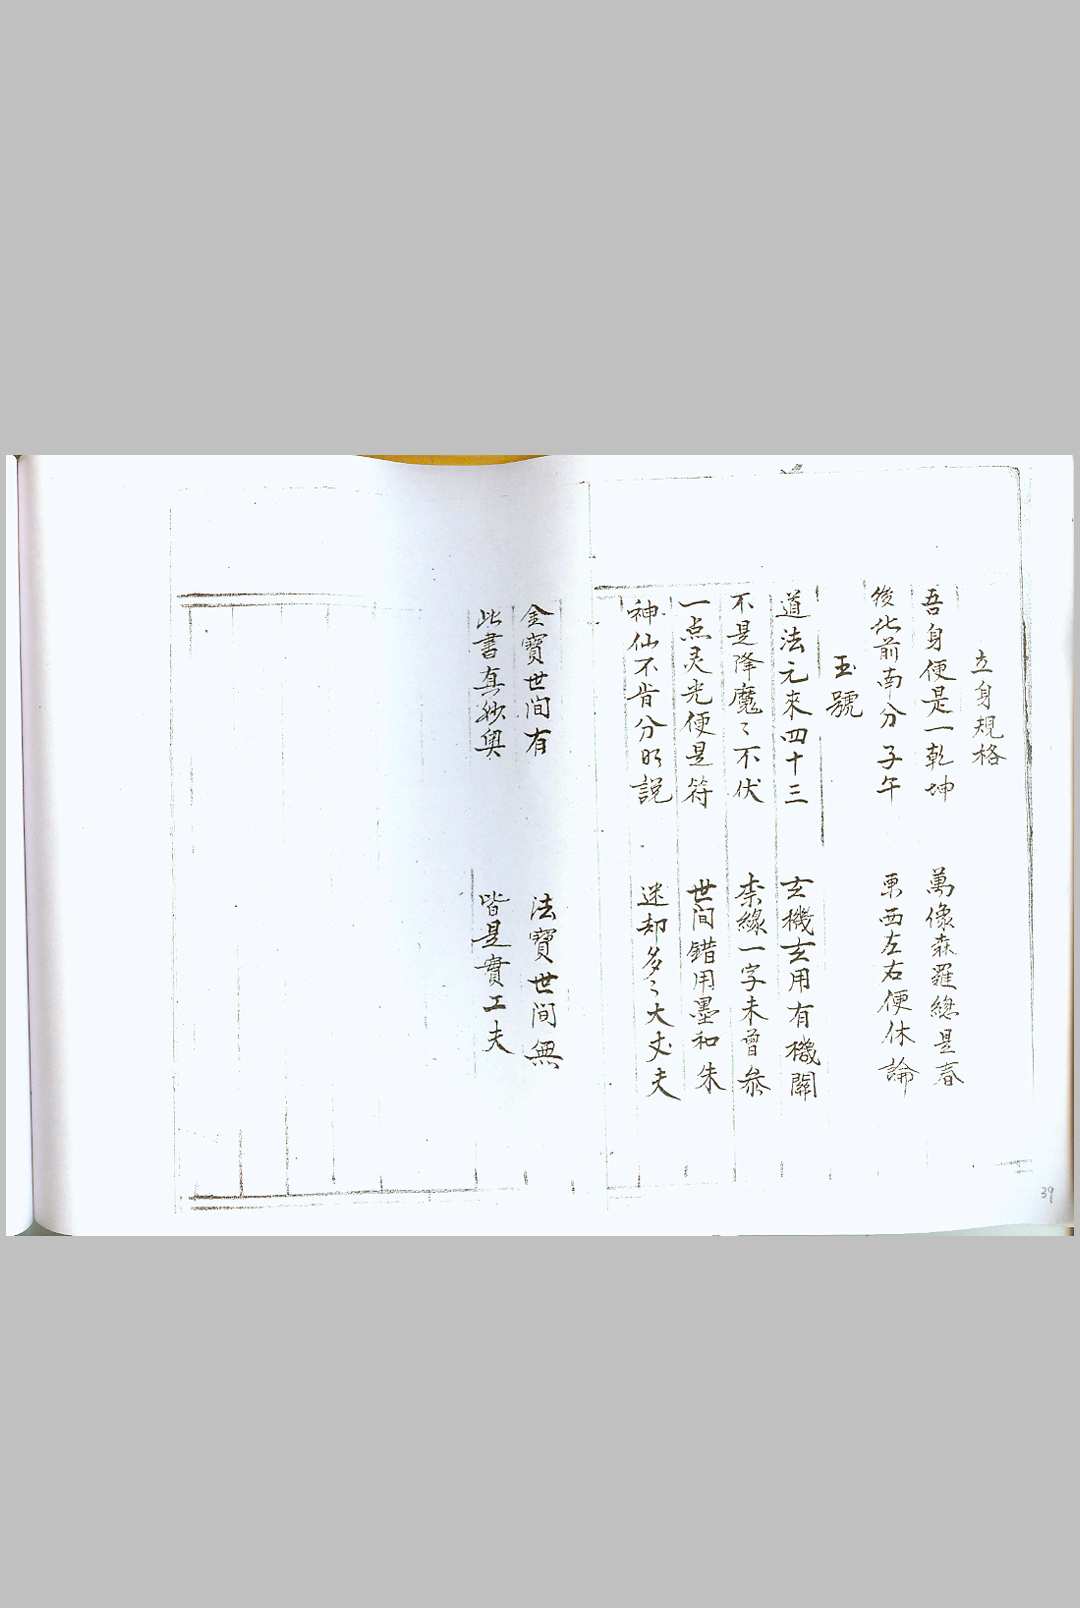 立身規格
吾身便是一乾坤 萬像森羅總是春
後北前南分子午 東西左右便休論
玉號
道法元來四十三 玄機玄用有機關
不是降魔〻不伏 緣一字未曾叅
一点灵光便是符 世间錯用墨和朱
神仙不肯分明説 迷却多〻大丈夫
金寳世间有 法寳世间無
此書真妙奥 皆是實工夫
39